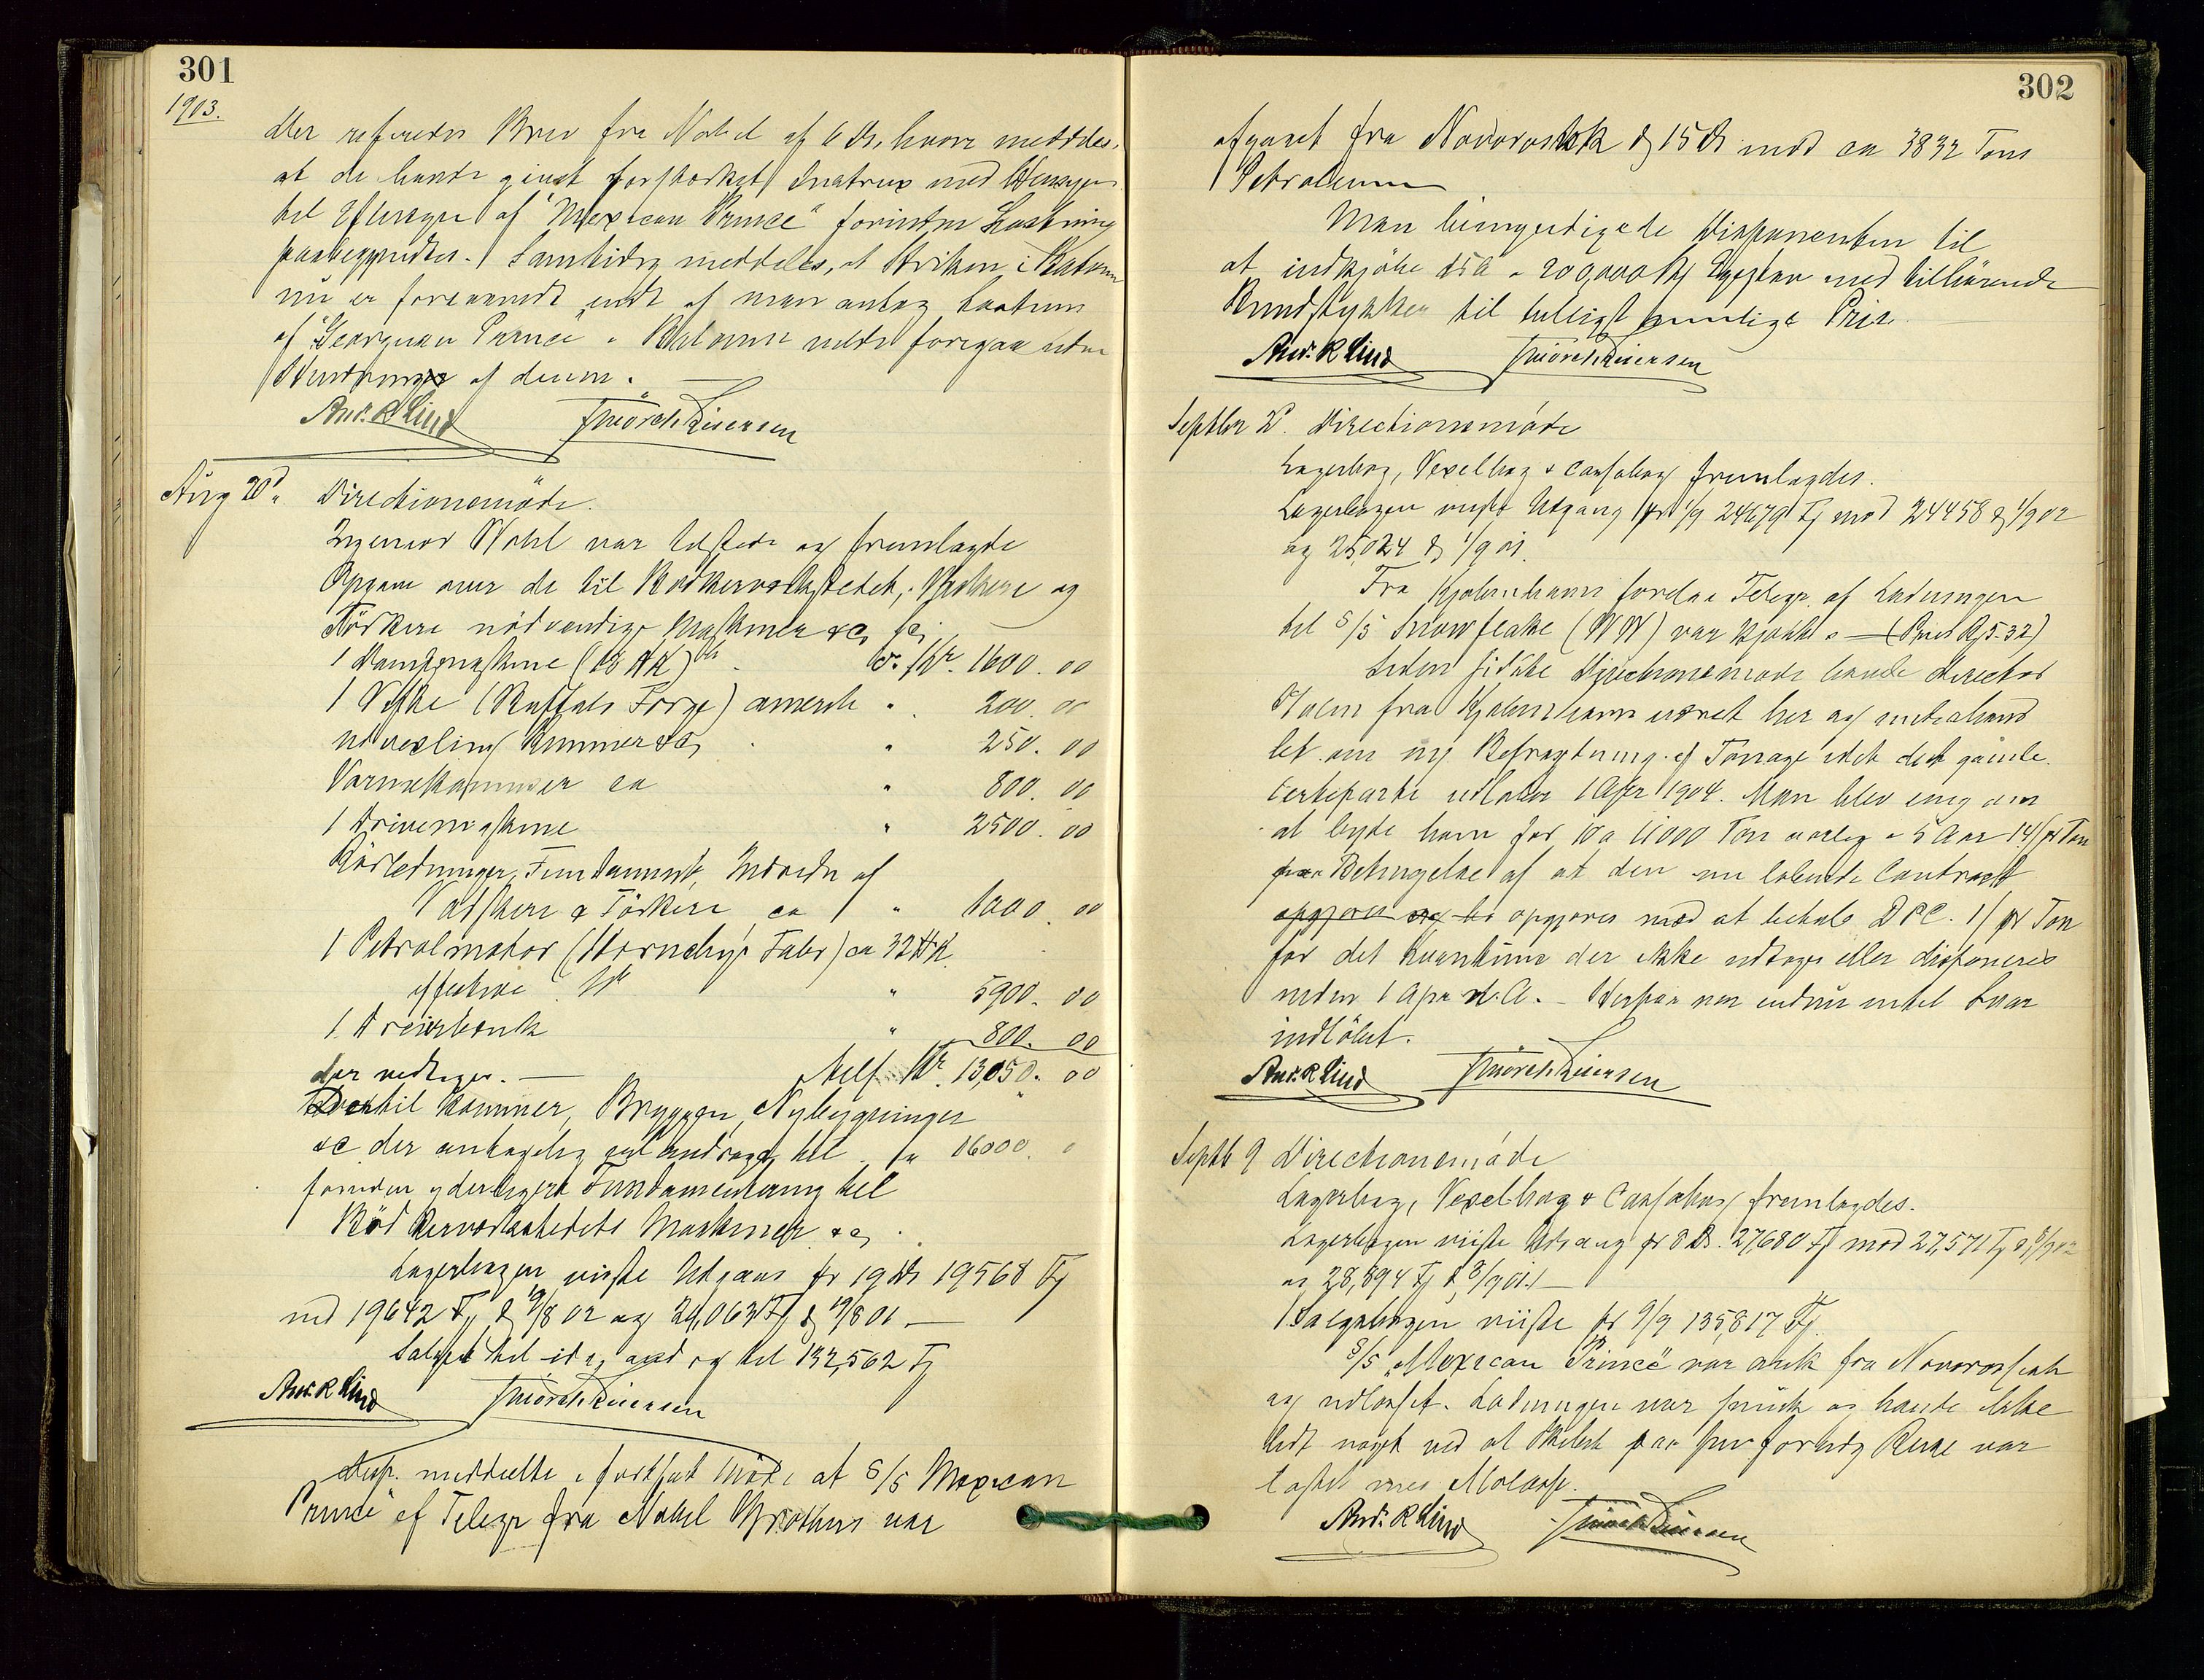 301
1903.
der refereres Brev fra Nobel af 6 ds, hvori meddeles,
at de havde givet forstærket Instrux med Hensyn
til Eftersyn af "Mexican Prince" forinden Lastning
paabegyndtes. Samtidig meddeles, at Striken i Batoum
nu er forevendt endt af man antog Lastning
af "Georgian Prince" i Batoum vilde foregaa uden
Hindringer af denne.
Andr. R Lind Thiorsth Reiersen
Aug 20de Directionsmöde.
Ingeniör Wohl var tilstede og fremlagde
Opgave over de til Bödkerværkstedet, Vaskere og
Törkere nödvendige Maskiner &c,
1 Dampmaskine (18 HK) Kr. 1600.00
1 Vifte (Buffalo Forge) amerik " 200.00
Udvexling Remmer &c, " 250.00
Varmekammer ca " 800.00
1 Drivemaskine " 2500.00
Rörledninger, Fundament, Indredn af
Vadskere & Törkere ca " 1000.00
1 Petrolmotor (Hornsby's Fabr) ca 32 HK
effektive " 5900.00
1 Dreierbenk " 800.00
der vedtoges. — tils. Kr. 13,050.00
Dertil kommer, Bryggen, Nybygninger
&c der antagelig vil andrage til ca 16000.0
foruden yderligere Fundamentering til
Bödkerværkstedets Maskiner &c,
Lagerbogen viiste Udgang pr 19 ds 19568 Fj
mod 19642 Fj d 19/8 02 og 20,063 Fj d 19/8 01. —
Salget til idag androg til 132,562 Fj
Andr. R Lind Thiorsth Reiersen
Disp. meddelte i fortsat Möde at S/S Mexican
Prince ef Telegr fra Nobel Brothers var
302
afgaaet fra Novorossisk d 15 ds med ca 3832 Tons
Petroleum
Man bemyndigede Disponenten til
at indkjöbe 150 a 200,000 Stk Egestav med tilhörende
Bundstykker til billigst mulige Pris.
Andr. R Lind Thiorsth Reiersen
Septbr 2. Directionsmöde
Lagerbog, Vexelbog & Cassabog fremlagdes.
Lagerbogen viiste Udgang pr 1/9 24679 Fj mod 24458 d 1/9 02
og 25,024 d 1/9 01.
Fra Kjøbenhavn forelaa Telegr. af Ladningen
til S/S Snowflake (WW) var kjøbt — (Pris Rj 5.32)
Siden sidste Directionsmöde havde Director
Holm fra Kjøbenhavn været her og underhand
let om ny Befragtning af Tonnage idet det gamle
Certeparti udløber 1 Apr 1904. Man blev enig om
at byde ham for 10 a 11000 Ton aarlig i 5 Aar 14/ pr Ton
paa Betingelse af at den nu løbende Contract
opgjøres med at betale D.P.C. 1/ pr Ton
for det Kvantum der ikke udtages eller disponeres
inden 1 Apr n.A. — Herpaa var endnu intet Svar
indlöbet.
Andr. R Lind Thiorsth Reiersen
Septb 9 Directionsmöde
Lagerbog, Vexelbog & Cassabog fremlagdes.
Lagerbogen viiste Udgang pr 8 ds. 27,680 Fj mod 27,571 Fj d 8/9 02
og 28,894 Fj d 8/9 01. —
Salgsbogen viiste pr 9/9 135,817 Fj.
S/S "Mexican Prince" var ank fra Novorossisk
og udlosset. Ladningen var smuk og havde ikke
lidt noget ved at Skibet paa sin forrige Reise var
lastet med Molasse.
Andr. R Lind Thiorsth Reiersen